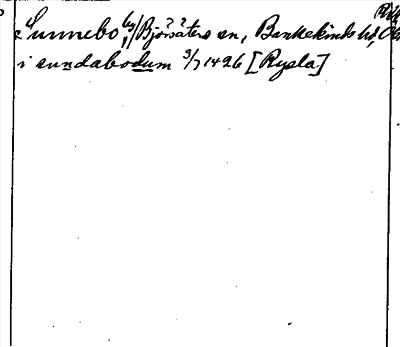 Sunnebo, by, Björsäters sn, Bankekinds hd, Ög
i sundabodum 3/7 1426 [Rysla]